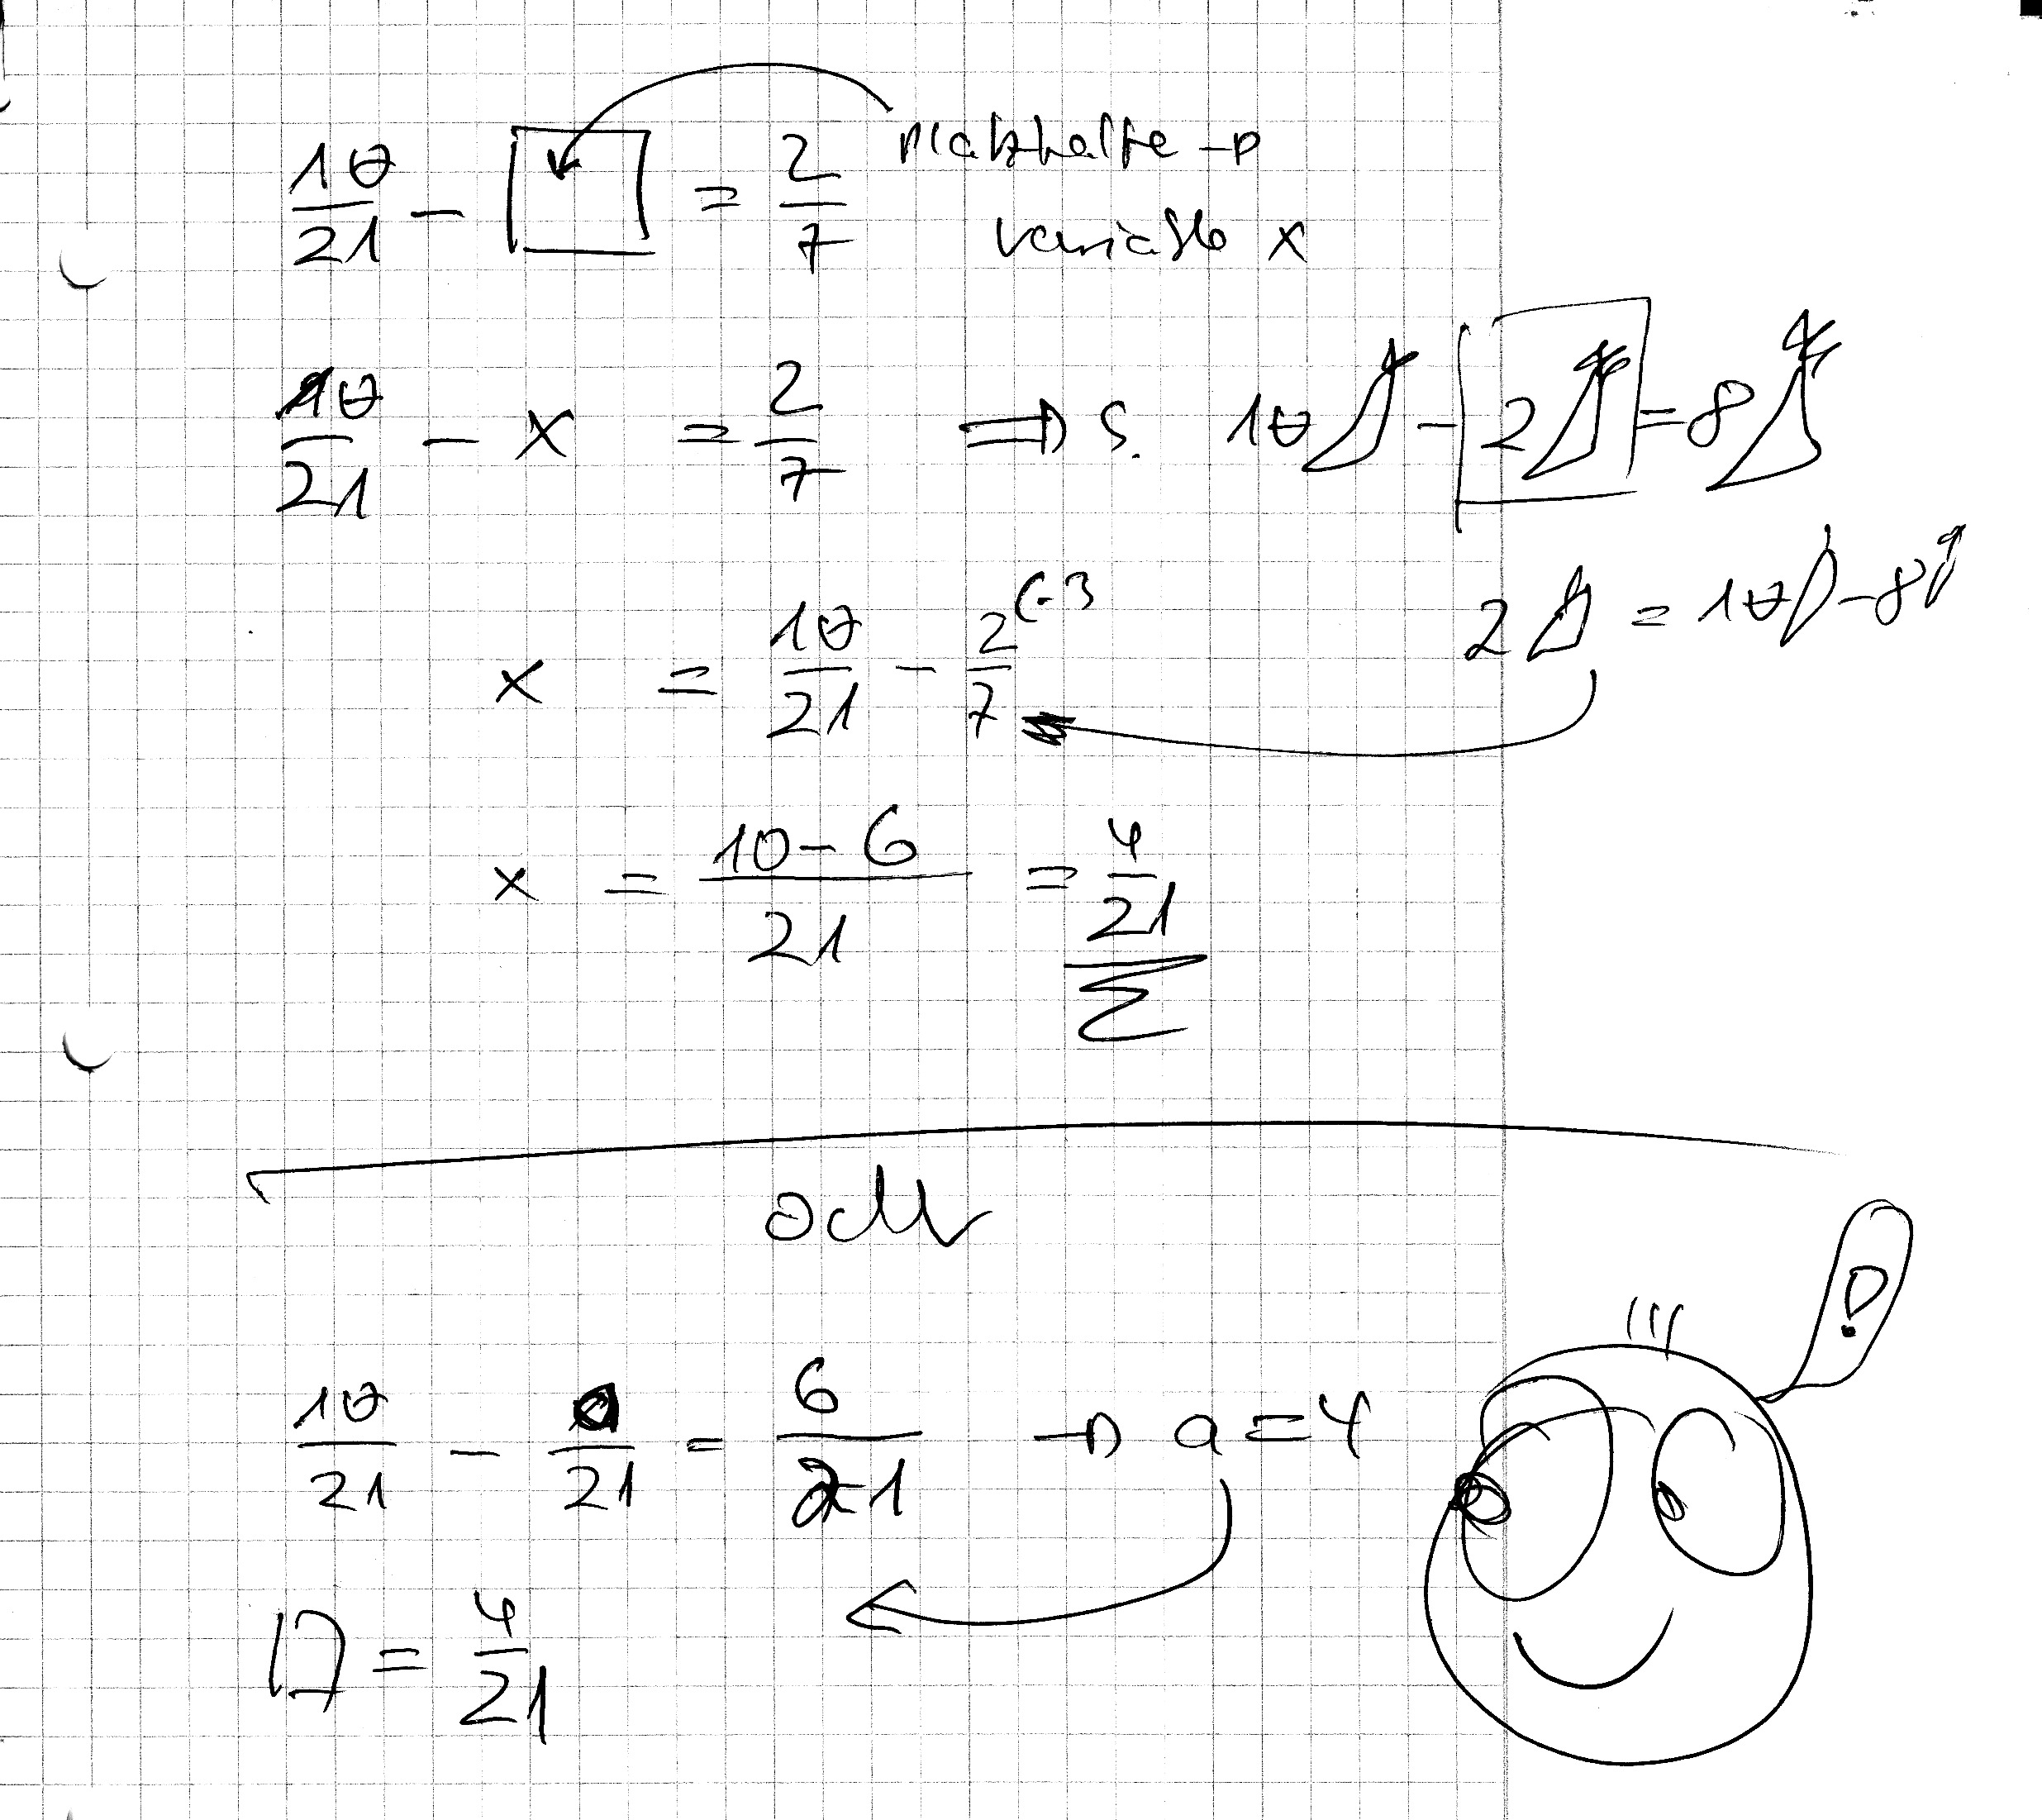 10/21 - □ = 2/7 Platzhalter →
Variable x
10/21 - x = 2/7 ⇒ s. 10 - 2 = 8
2 = 10 - 8
x = 10/21 - 2/7 (·3
x = (10-6)/21 = 4/21
oder
10/21 - a/21 = 6/21 → a = 4
□ = 4/21
!